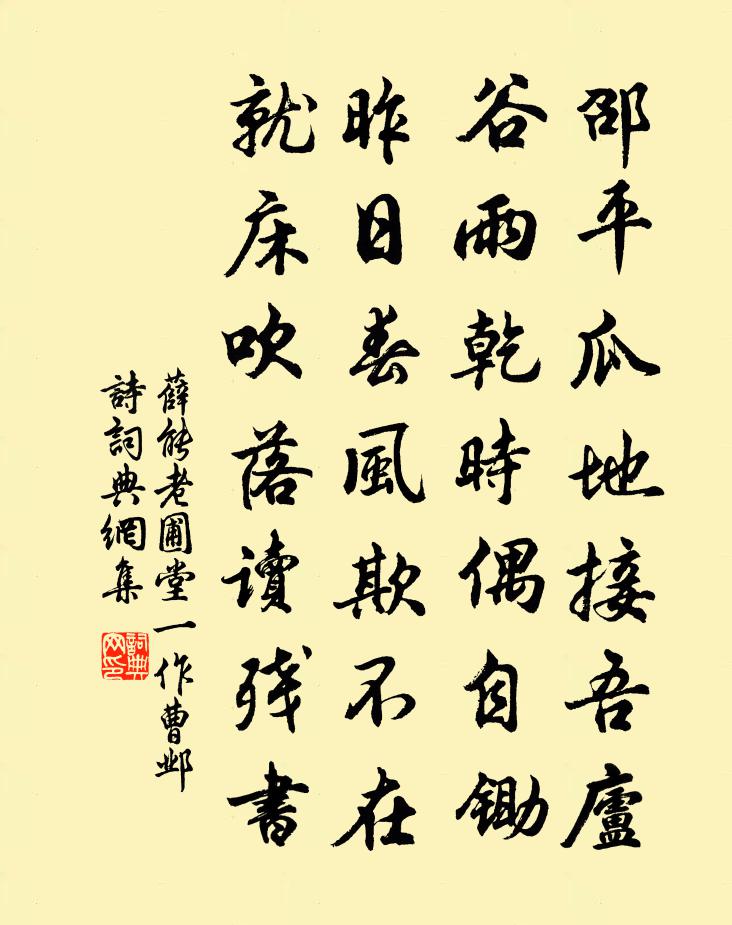 邵平瓜地接吾廬
谷雨乾時偶自鋤
昨日春風欺不在
就床吹落讀残書
薛能老圃堂一作曹邺
詩詞典網集
詞典网印